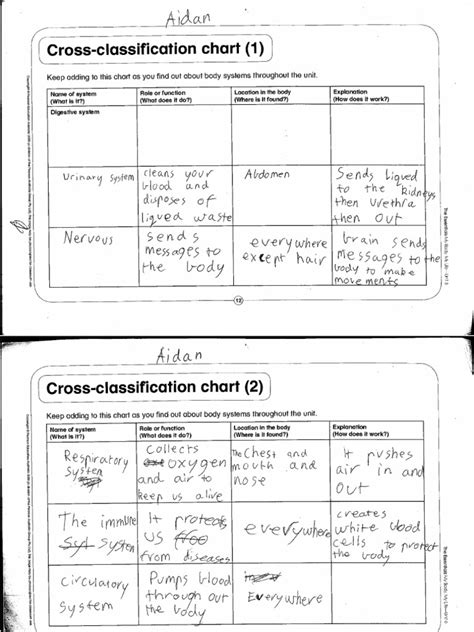 Aidan
Cross-classification chart (1)
Keep adding to this chart as you find out about body systems throughout the unit.
Name of system
(What is it?)
Role or function
(What does it do?)
Location in the body
(Where is it found?)
Explanation
(How does it work?)
Digestive system
Urinary system
cleans your
blood and
disposes of
liqued waste
Abdomen
Sends liqued
to the kidneys
then urethra
then out
Nervous
Sends
messages to
the body
everywhere
except hair
brain sends
messages to the
body to make
movements
12
Aidan
Cross-classification chart (2)
Keep adding to this chart as you find out about body systems throughout the unit.
Name of system
(What is it?)
Role or function
(What does it do?)
Location in the body
(Where is it found?)
Explanation
(How does it work?)
Respiratory
System
Collects
oxygen
and air to
keep us alive
The Chest and
mouth and
nose
It pushes
air in and
out
The immune
Syt System
It protects
us
from diseases
everywhere
creates
white blood
cells to protect
the body
Circulatory
System
Pumps blood
through out
the body
Everywhere